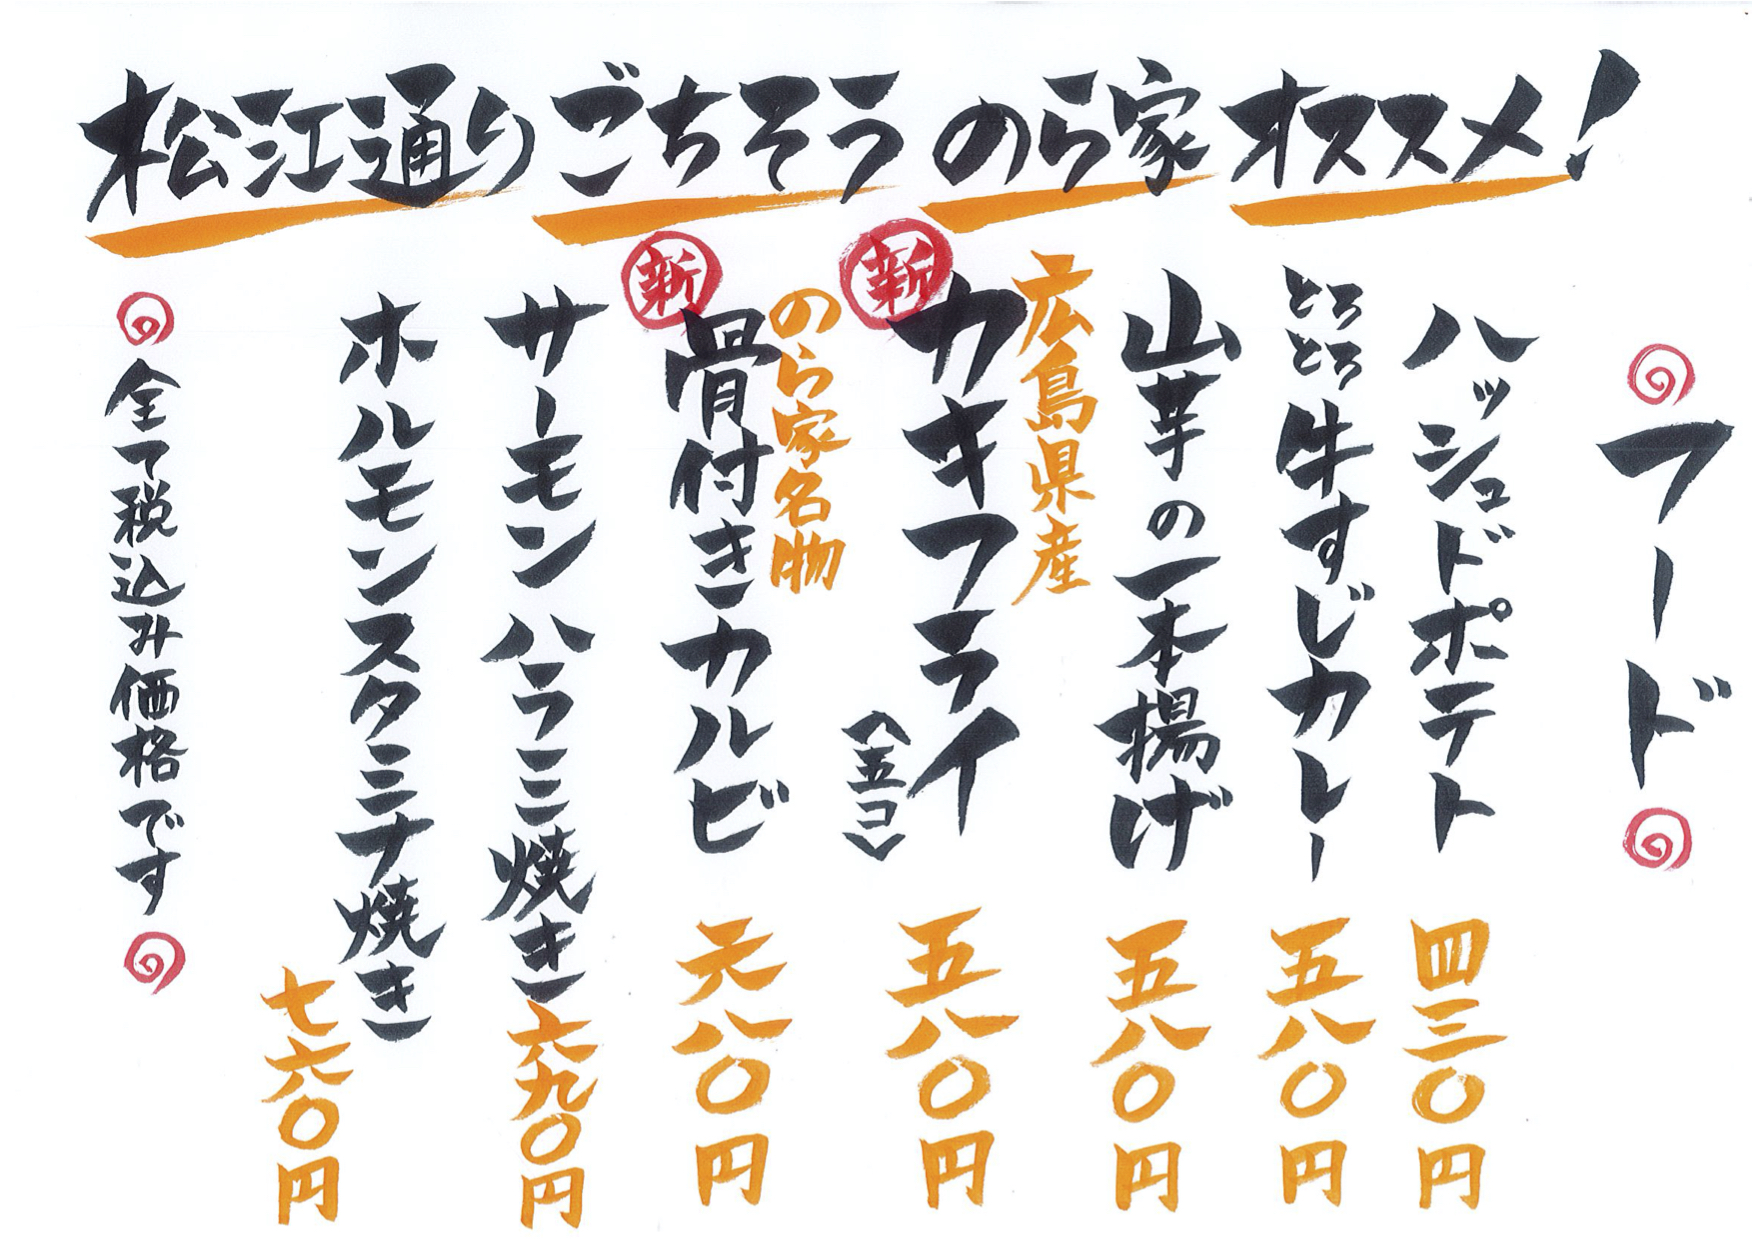 松江通りごちそうのら家オススメ!
フード
ハッシュドポテト
四三〇円
とろとろ牛すじカレー
五八〇円
山芋の一本揚げ
五八〇円
広島県産
新
カキフライ
(五コ)
五八〇円
のら家名物
新
骨付きカルビ
六八〇円
サーモンハラミ焼き
六九〇円
ホルモンスタミナ焼き
七六〇円
全て税込み価格です